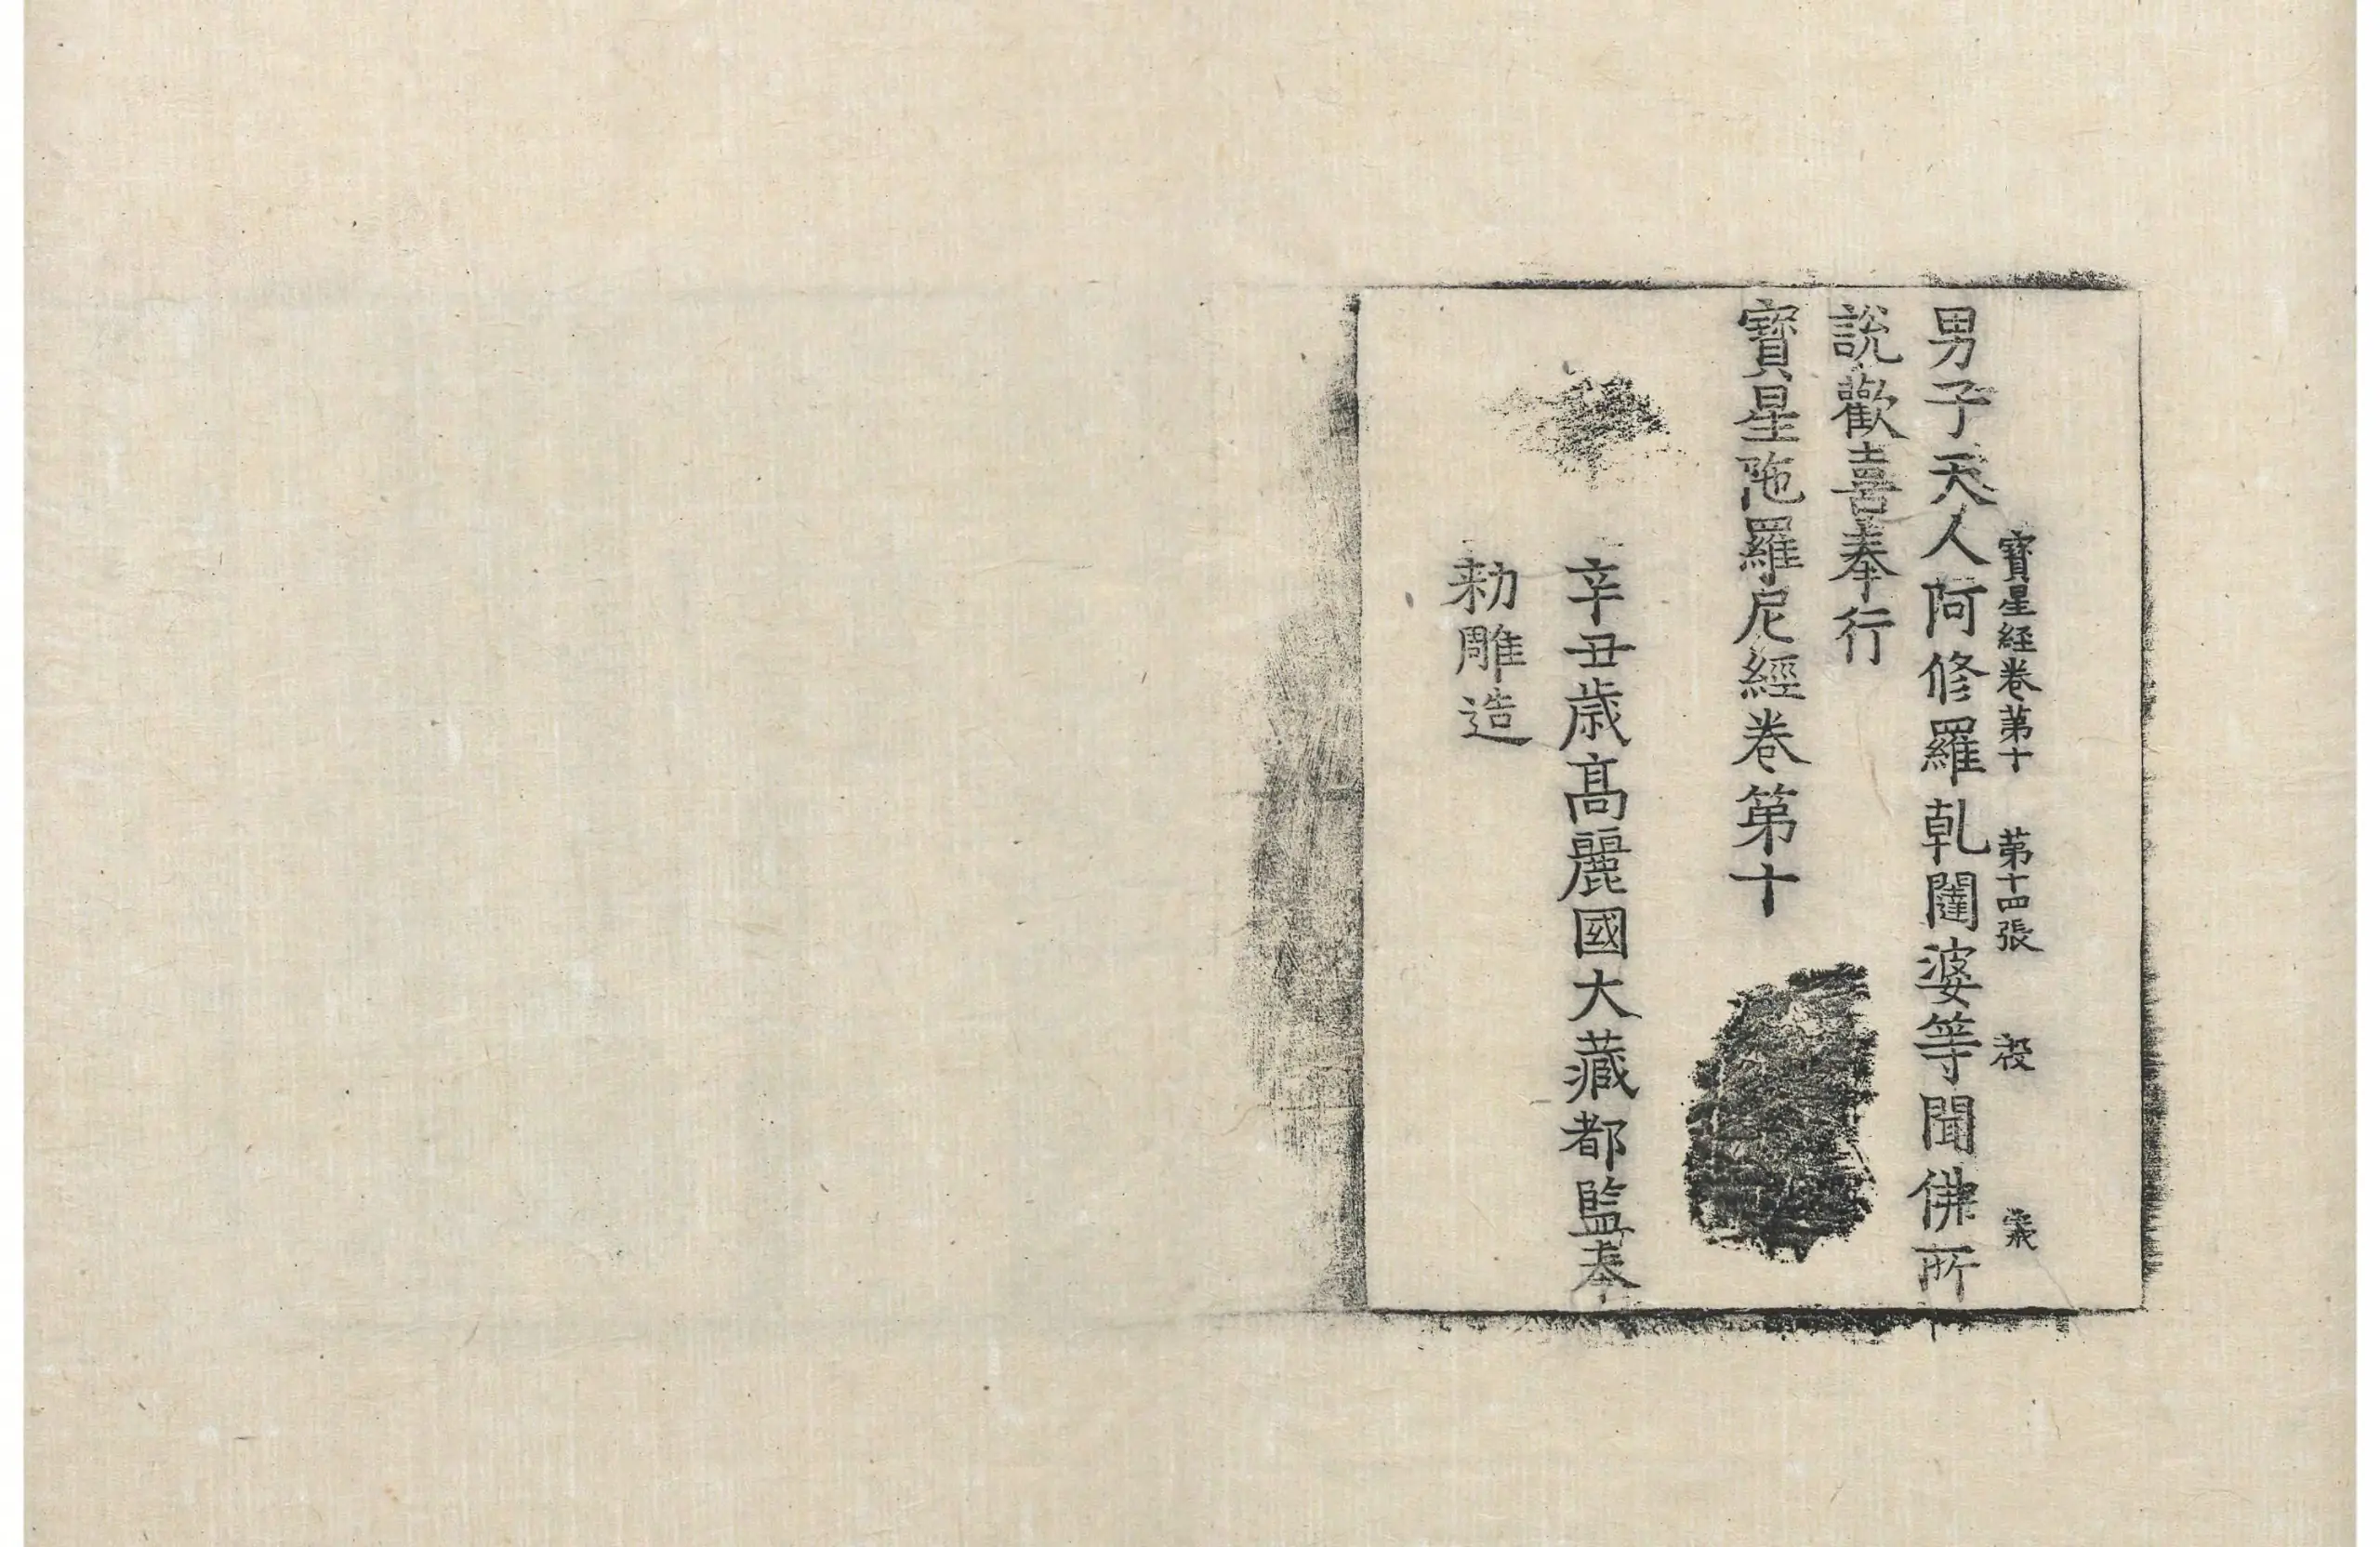 寶星経卷第十 第十四張
男子天人阿修羅乹闥婆等聞佛所
說歡喜奉行
寶星陁羅尼經卷第十
辛丑歲高麗國大藏都監奉
勑雕造